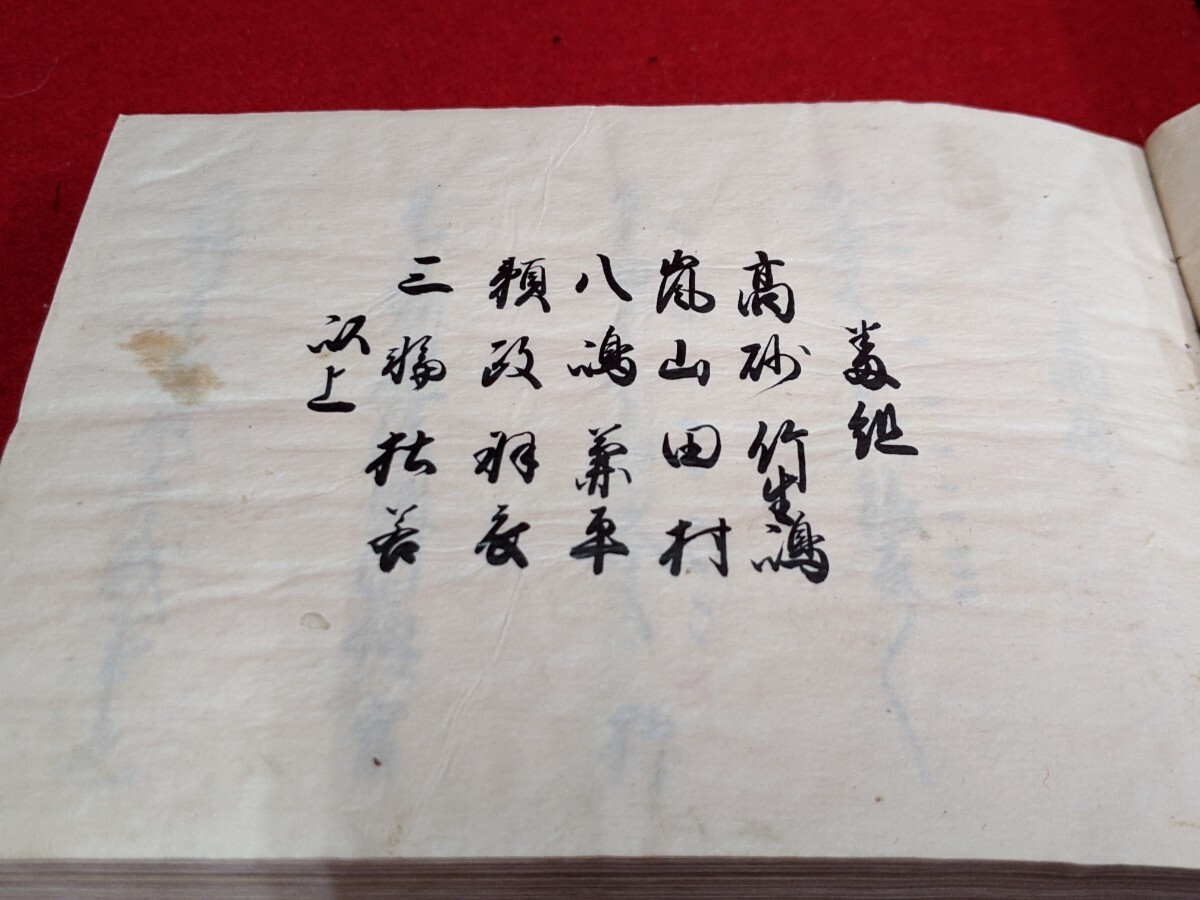 番組
高砂 竹生嶋
嵐山 田村
八嶋 兼平
頼政 羽衣
三輪 杜若
以上